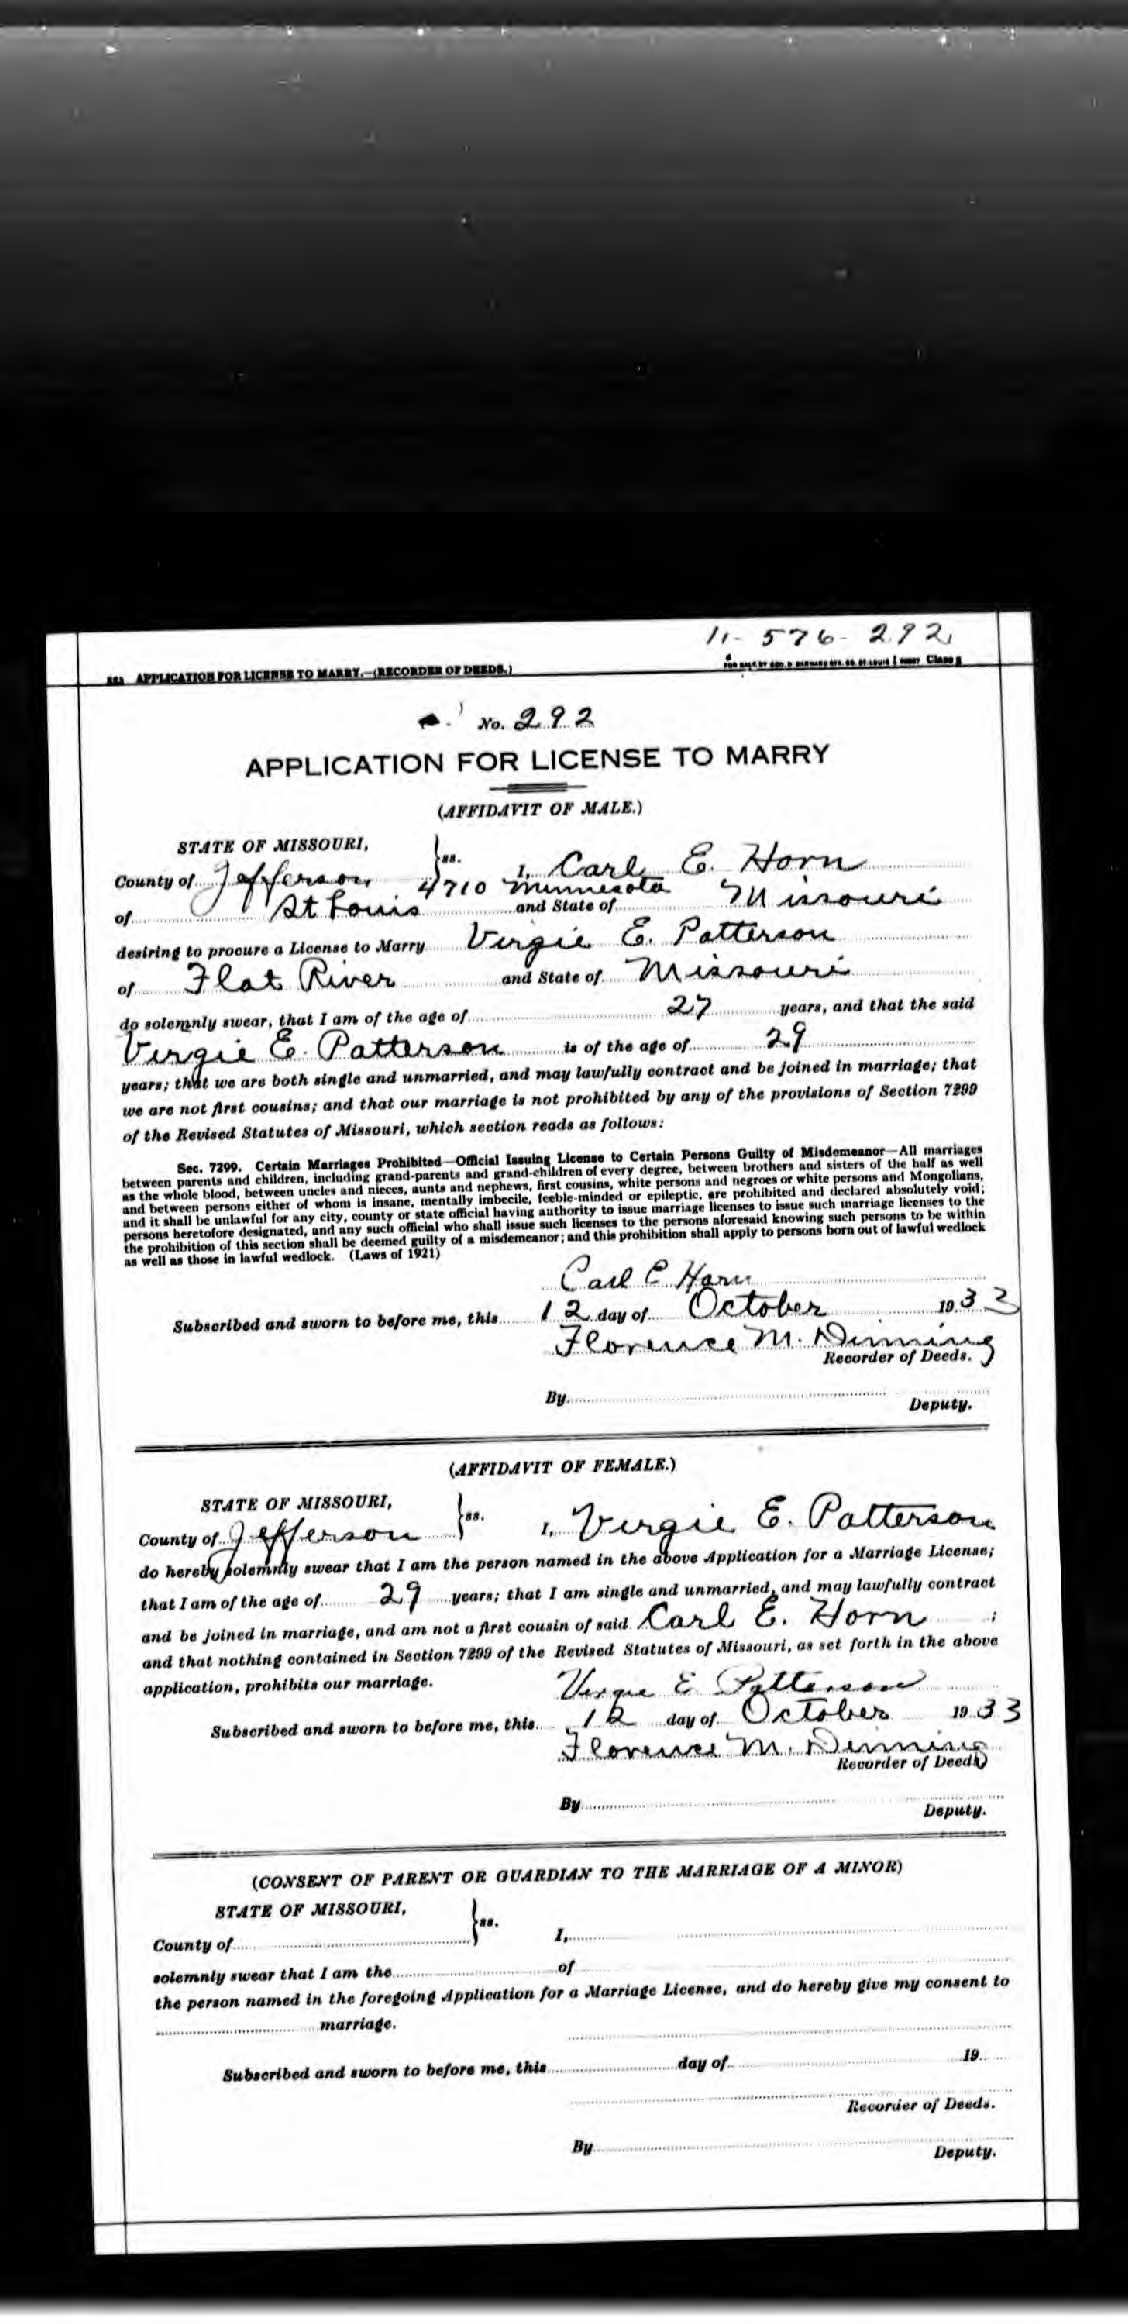 11- 576- 292
APPLICATION FOR LICENSE TO MARRY.—(RECORDER OF DEEDS.)
Class
No. 292
APPLICATION FOR LICENSE TO MARRY
(AFFIDAVIT OF MALE.)
STATE OF MISSOURI,
County of Jefferson } ss. I, Carl E. Horn
4710 Minnesota
of St Louis and State of Missouri
desiring to procure a License to Marry Virgie E. Patterson
of Flat River and State of Missouri
do solemnly swear, that I am of the age of 27 years, and that the said
Virgie E. Patterson is of the age of 29
years; that we are both single and unmarried, and may lawfully contract and be joined in marriage; that
we are not first cousins; and that our marriage is not prohibited by any of the provisions of Section 7299
of the Revised Statutes of Missouri, which section reads as follows:
Sec. 7299. Certain Marriages Prohibited—Official Issuing License to Certain Persons Guilty of Misdemeanor—All marriages
between parents and children, including grand-parents and grand-children of every degree, between brothers and sisters of the half as well
as the whole blood, between uncles and nieces, aunts and nephews, first cousins, white persons and negroes or white persons and Mongolians,
and between persons either of whom is insane, mentally imbecile, feeble-minded or epileptic, are prohibited and declared absolutely void;
and it shall be unlawful for any city, county or state official having authority to issue marriage licenses to issue such marriage licenses to the
persons heretofore designated, and any such official who shall issue such licenses to the persons aforesaid knowing such persons to be within
the prohibition of this section shall be deemed guilty of a misdemeanor; and this prohibition shall apply to persons born out of lawful wedlock
as well as those in lawful wedlock. (Laws of 1921)
Carl E Horn
Subscribed and sworn to before me, this 12 day of October 1933
Florence M. Dinning
Recorder of Deeds.
By
Deputy.
(AFFIDAVIT OF FEMALE.)
STATE OF MISSOURI,
County of Jefferson } ss. I, Virgie E. Patterson
do hereby solemnly swear that I am the person named in the above Application for a Marriage License;
that I am of the age of 29 years; that I am single and unmarried, and may lawfully contract
and be joined in marriage, and am not a first cousin of said Carl E. Horn ;
and that nothing contained in Section 7299 of the Revised Statutes of Missouri, as set forth in the above
application, prohibits our marriage.
Virgie E Patterson
Subscribed and sworn to before me, this 12 day of October 1933
Florence M. Dinning
Recorder of Deeds
By
Deputy.
(CONSENT OF PARENT OR GUARDIAN TO THE MARRIAGE OF A MINOR)
STATE OF MISSOURI,
County of } ss. I,
solemnly swear that I am the of
the person named in the foregoing Application for a Marriage License, and do hereby give my consent to
marriage.
Subscribed and sworn to before me, this day of 19
Recorder of Deeds.
By
Deputy.